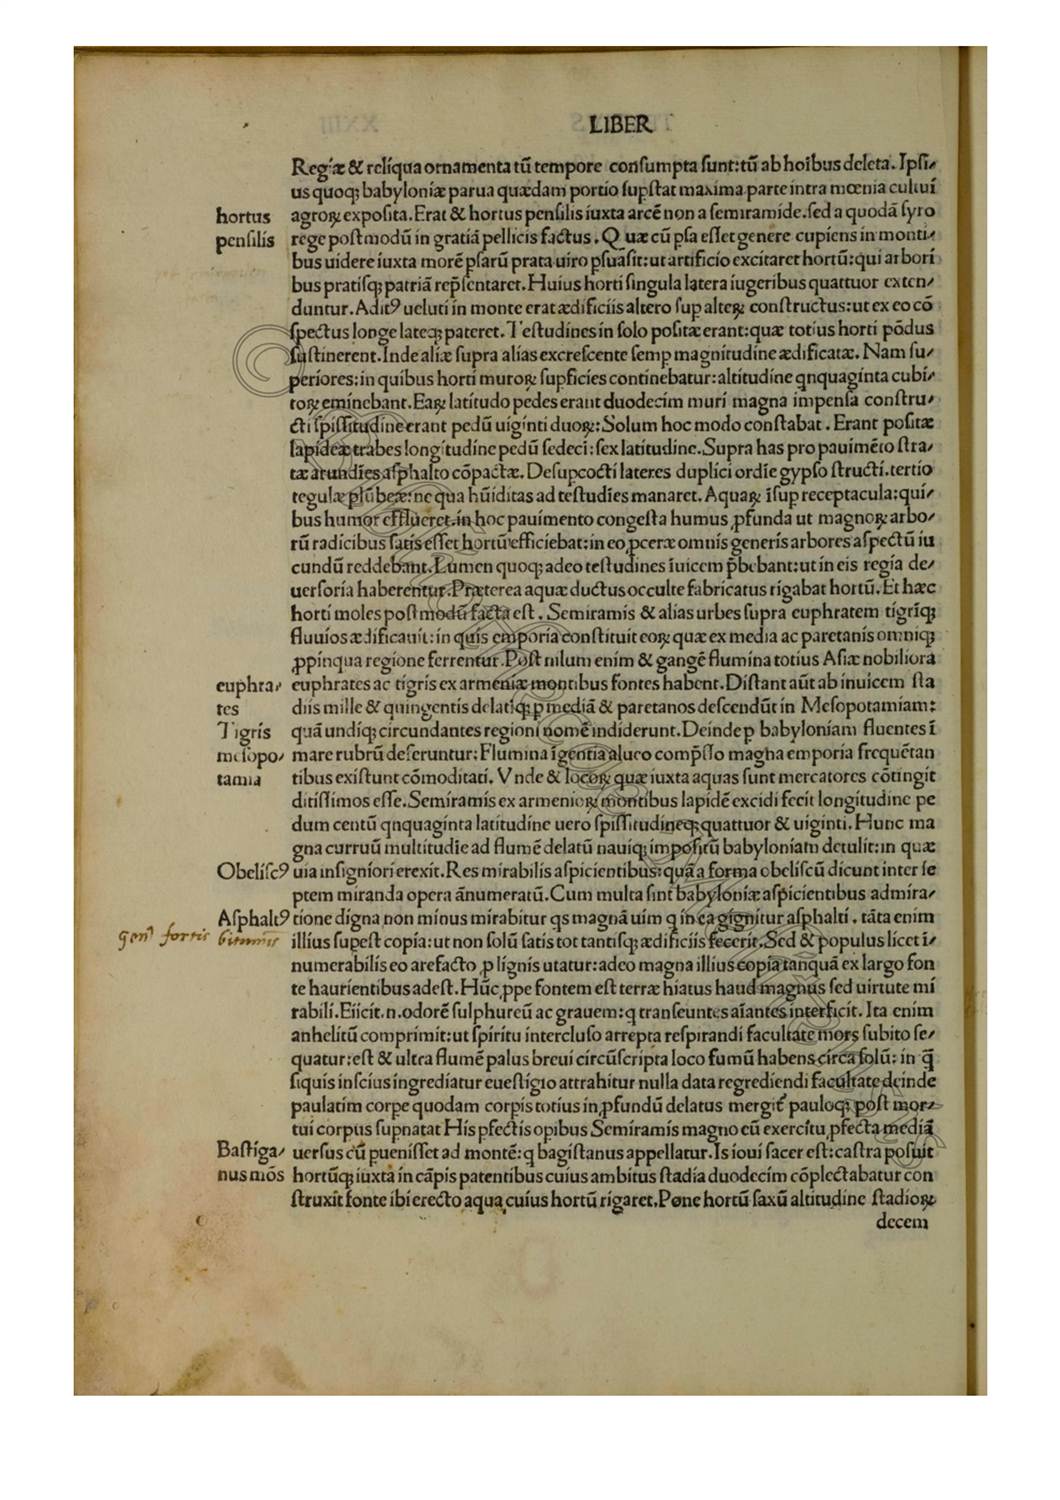 LIBER
Regiæ & reliqua ornamenta tū tempore consumpta sunt:tū ab hoībus deleta. Ipsi⸗
us quoqꝫ babyloniæ parua quædam portio supstat maxima parte intra mœnia cultui
hortus
pensilis
agroꝝ exposita. Erat & hortus pensilis iuxta arcē non a semiramide.sed a quodā syro
rege postmodū in gratiā pellicis factus. Quæ cū psa esset genere cupiens in monti⸗
bus uidere iuxta morē psarū prata uiro psuasit:ut artificio excitaret hortū:qui arbori
bus pratisqꝫ patriā rep̄sentaret. Huius horti singula latera iugeribus quattuor exten⸗
duntur. Aditꝰ ueluti in monte erat ædificiis altero sup alteꝝ constructus:ut ex eo cō
spectus longe lateqꝫ pateret. Testudines in solo positæ erant:quæ totius horti pōdus
sustinerent. Inde aliæ supra alias excrescente semp magnitudine ædificatæ. Nam su⸗
periores:in quibus horti muroꝝ supficies continebatur:altitudine qnquaginta cubi⸗
toꝝ eminebant. Eaꝝ latitudo pedes erant duodecim muri magna impensa constru⸗
cti spissitudine erant pedū uiginti duoꝝ: Solum hoc modo constabat. Erant positæ
lapideæ trabes longitudine pedū sedeci: sex latitudine. Supra has pro pauimēto stra⸗
tæ arundīes asphalto cōpactæ. Desupcocti lateres duplici ordīe gypso structi. tertio
tegulæ plūbeæ:ne qua hūiditas ad testudīes manaret. Aquaꝝ īsup receptacula:qui⸗
bus humor efflueret. in hoc pauimento congesta humus ꝓfunda ut magnoꝝ arbo⸗
rū radicibus satis esset hortū efficiebat:in eo ꝓceræ omnis generis arbores aspectū iu
cundū reddebant. Lumen quoqꝫ adeo testudines īuicem p̄bebant:ut in eis regia de⸗
uersoria haberentur. Præterea aquæ ductus occulte fabricatus rigabat hortū. Et hæc
horti moles postmodū facta est. Semiramis & alias urbes supra euphratem tigrīqꝫ
fluuios ædificauit:in quis emporia constituit eoꝝ quæ ex media ac paretanis omniqꝫ
ꝓpinqua regione ferrentur. Post nilum enim & gangē flumina totius Asiæ nobiliora
euphra⸗
tes
Tigris
mesopo⸗
tamia
euphrates ac tigris ex armeniæ montibus fontes habent. Distant aūt ab inuicem sta
diis mille & quingentis delatiqꝫ p mediā & paretanos descendūt in Mesopotamiam:
quā undiqꝫ circundantes regioni nomē indiderunt. Deinde p babyloniam fluentes ī
mare rubrū deferuntur: Flumina īgentia alueo comp̄sso magna emporia frequētan
tibus existunt cōmoditati. Vnde & locoꝝ quæ iuxta aquas sunt mercatores cōtingit
ditissimos esse. Semiramis ex armenioꝝ montibus lapidē excidi fecit longitudine pe
dum centū qnquaginta latitudine uero spissitudineqꝫ quattuor & uiginti. Hunc ma
gna curruū multitudīe ad flumē delatū nauiqꝫ impositū babyloniam detulit:in quæ
Obeliscꝰ
uia insigniori erexit. Res mirabilis aspicientibus:quā a forma obeliscū dicunt inter se
ptem miranda opera ānumeratū. Cum multa sint babyloniæ aspicientibus admira⸗
Asphaltꝰ
tione digna non minus mirabitur qs magnā uim q in ea gignitur asphalti. tāta enim
illius supest copia:ut non solū satis tot tantisqꝫ ædificiis fecerit. Sed & populus licet ī⸗
numerabilis eo arefacto ꝓ lignis utatur:adeo magna illius copia tanquā ex largo fon
te haurientibus adest. Hūc ꝓpe fontem est terræ hiatus haud magnus sed uirtute mi
rabili. Eiicit .n. odorē sulphureū ac grauem:q transeuntes aīantes interficit. Ita enim
anhelitū comprimit:ut spiritu intercluso arrepta respirandi facultate mors subito se⸗
quatur:est & ultra flumē palus breui circūscripta loco fumū habens circa solū: in q̄
siquis inscius ingrediatur euestigio attrahitur nulla data regrediendi facultate deinde
paulatim corpe quodam corpis totius in ꝓfundū delatus mergit̄ pauloqꝫ post mor⸗
tui corpus supnatat His pfectis opibus Semiramis magno cū exercitu ꝓfecta mediā
Bastiga⸗
nus mōs
uersus cū puenisset ad montē:q bagistanus appellatur. Is ioui sacer est:castra posuit
hortūqꝫ iuxta in cāpis patentibus cuius ambitus stadia duodecim cōplectabatur con
struxit fonte ibi erecto aqua cuius hortū rigaret. Pone hortū saxū altitudine stadioꝝ
decem